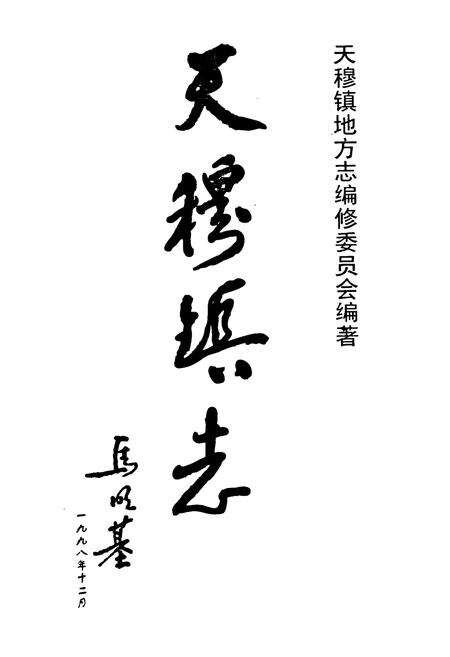 天穆镇地方志编修委员会编著
天穆镇志
马明基
一九九八年十二月